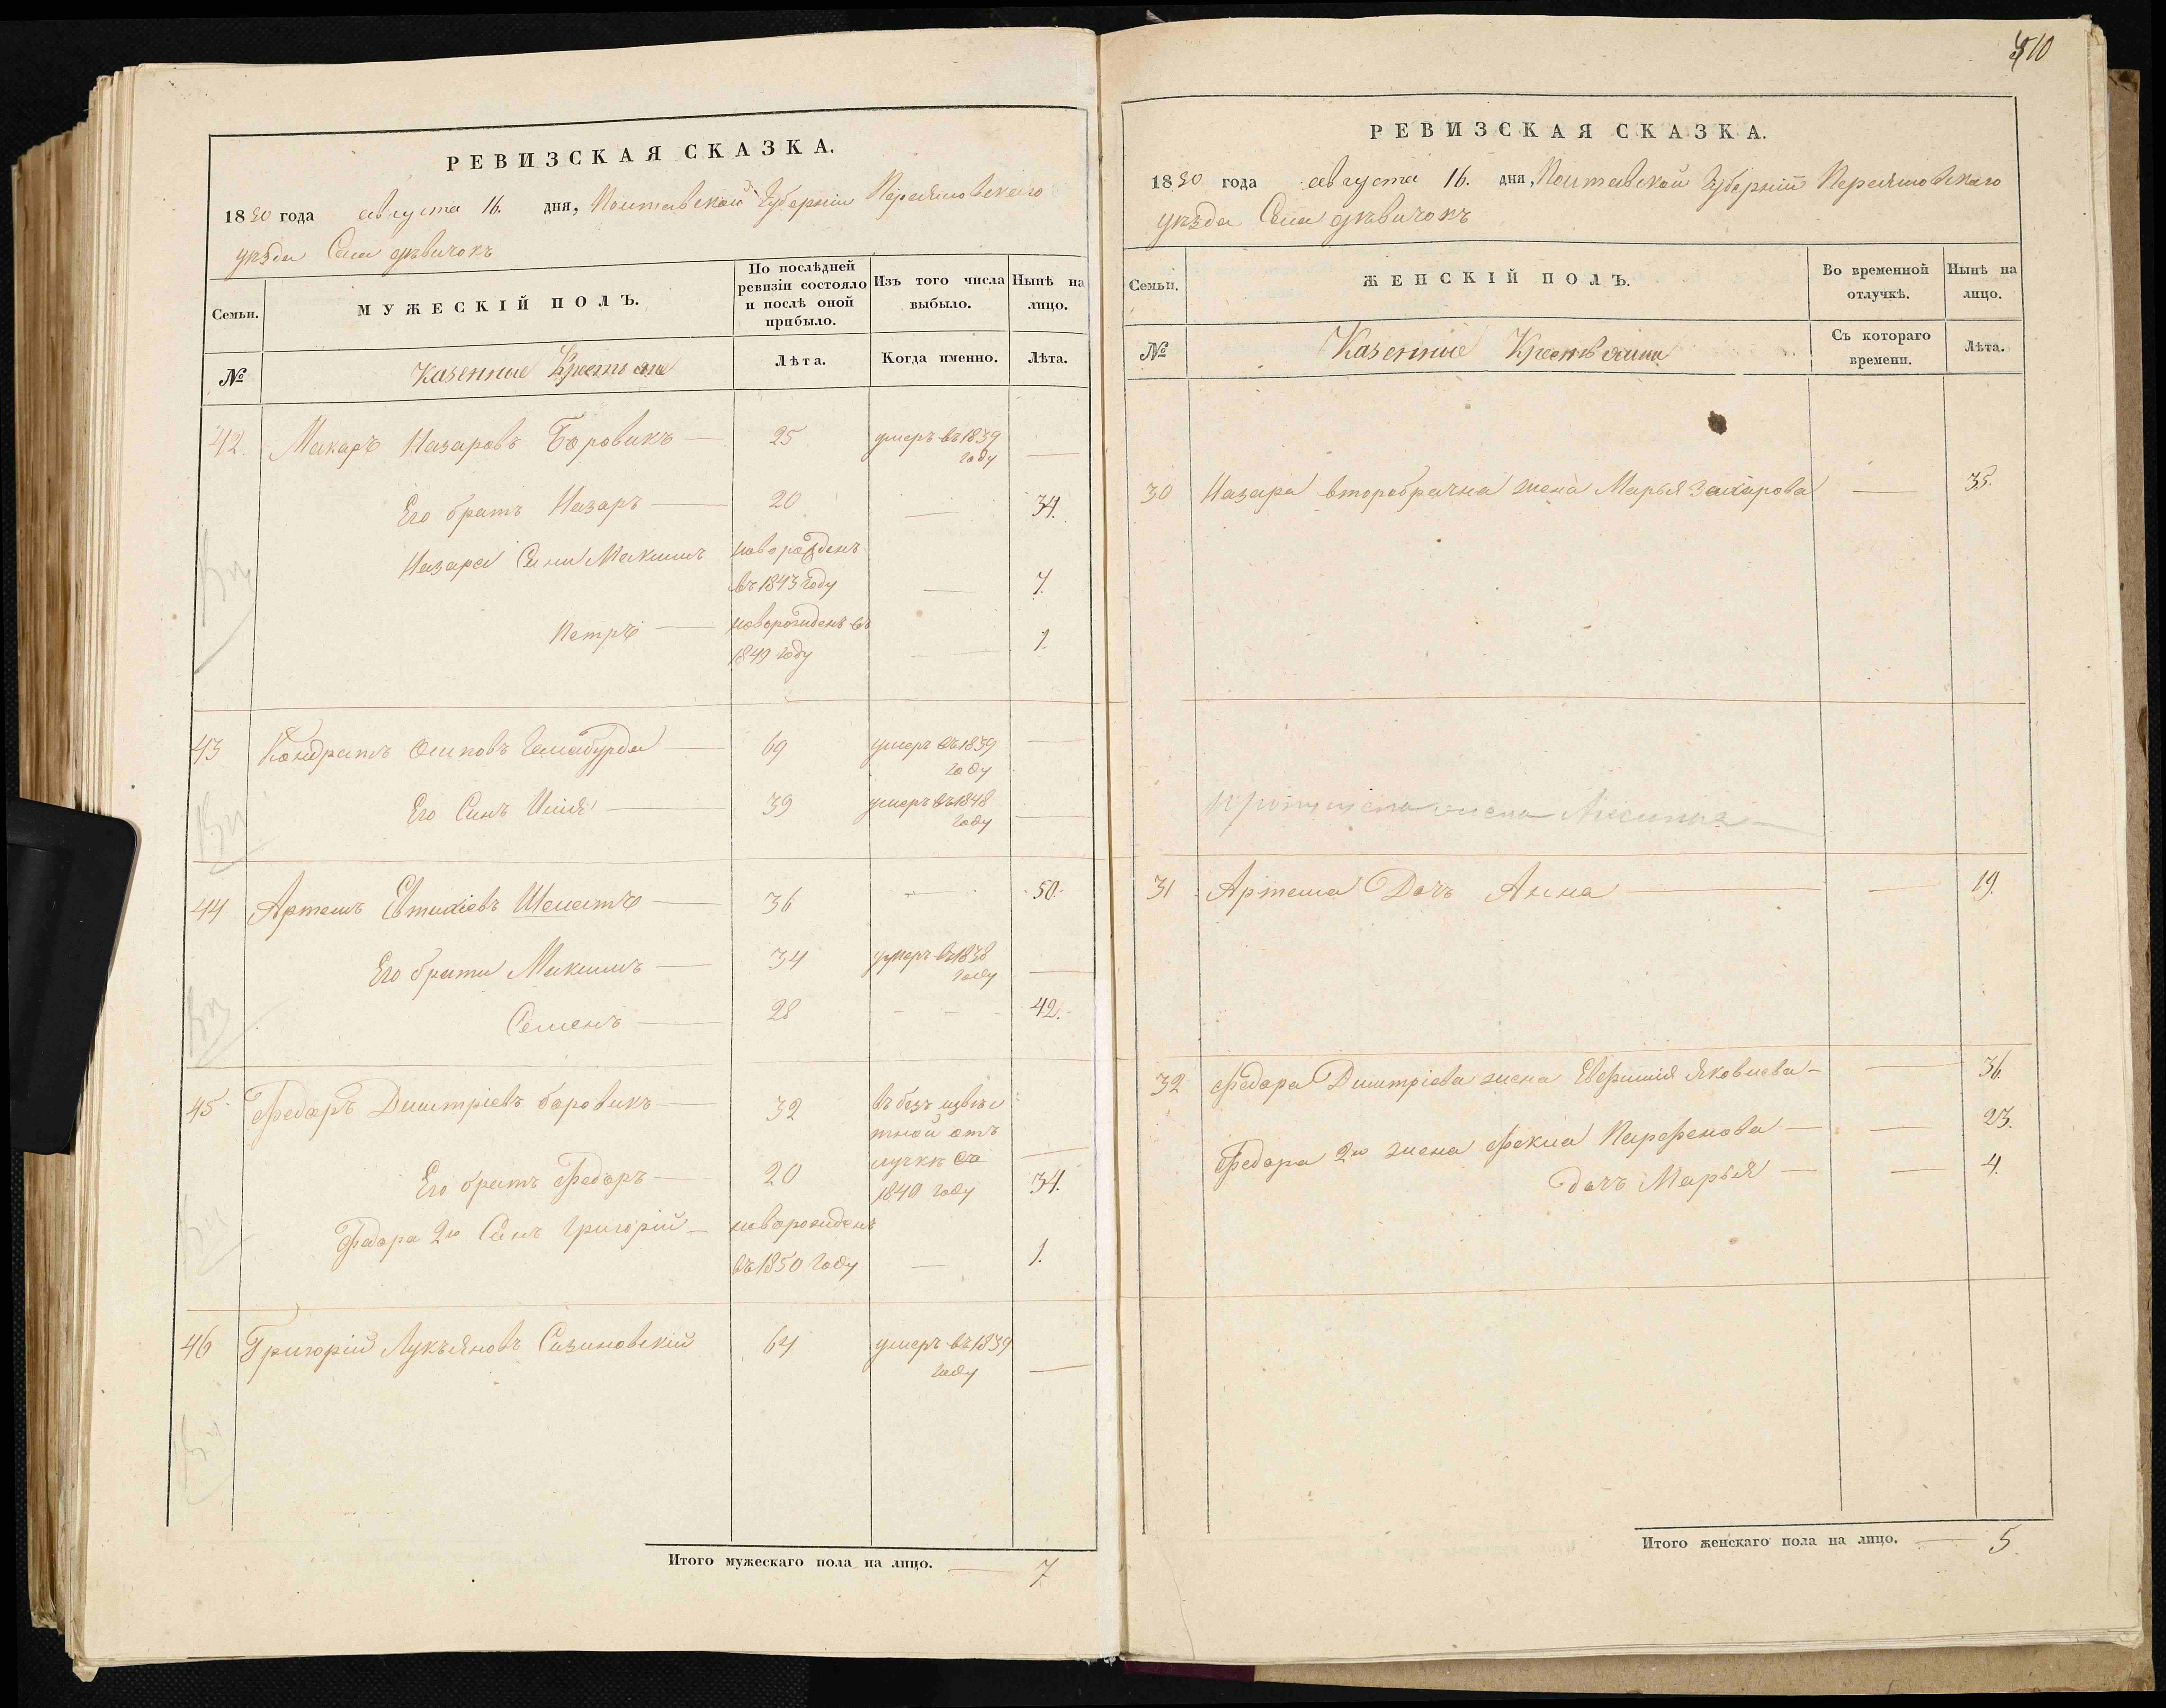 510
РЕВИЗСКАЯ СКАЗКА.
1850 года августа 16. дня, Полтавской Губерніи Переяславскаго
уѣзда Села Дѣвичокъ
Семьи.
МУЖЕСКІЙ ПОЛЪ.
По послѣдней ревизіи состояло и послѣ оной прибыло.
Изъ того числа выбыло.
Нынѣ на лицо.
№
Казенние Крестьяне
Лѣта.
Когда именно.
Лѣта.
42. Макаръ Назаровъ Боровикъ — 25 умеръ въ 1839 году —
Его братъ Назаръ — 20 — 34.
Назара Сини Максимъ новорожденъ
въ 1843 году — 7.
Петръ — новорожденъ въ
1849 году — 1.
43 Кондратъ Осиповъ 69 умеръ въ 1839 году —
Его Синъ Илія — 39 умеръ въ 1848 году —
44 Артемъ Евтихіевъ Шелестъ — 36 — 50.
Его брати Максимъ — 34 умеръ въ 1838 году —
Семенъ — 28 - - - 42.
45 Федоръ Димитріевъ боровикъ — 32 въ безъизвѣс
тной отъ
Его братъ Федоръ — 20 лучкѣ съ
1840 году 34.
Федора 2го Синъ Григорій — новорожденъ
въ 1850 году — 1.
46 Григорій Лукъяновъ 64 умеръ въ 1839 году —
Итого мужескаго пола на лицо. — 7
РЕВИЗСКАЯ СКАЗКА.
1850 года августа 16. дня, Полтавской Губерніи Переяславскаго
уѣзда Села Дѣвичокъ
Семьи.
ЖЕНСКІЙ ПОЛЪ.
Во временной отлучкѣ.
Нынѣ на лицо.
№
Казенние Крестьяни
Съ котораго времени.
Лѣта.
30 Назара второбрачна жена Марья Захарова — 35.
жена
31 Артема Дочъ Анна — — 19.
32 Федора Димитріева жена Евфимія Яковлева — — 36.
Федора 2го жена Фекла Парфенова — — 23.
дочъ Марья — — 4.
Итого женскаго пола на лицо. — 5